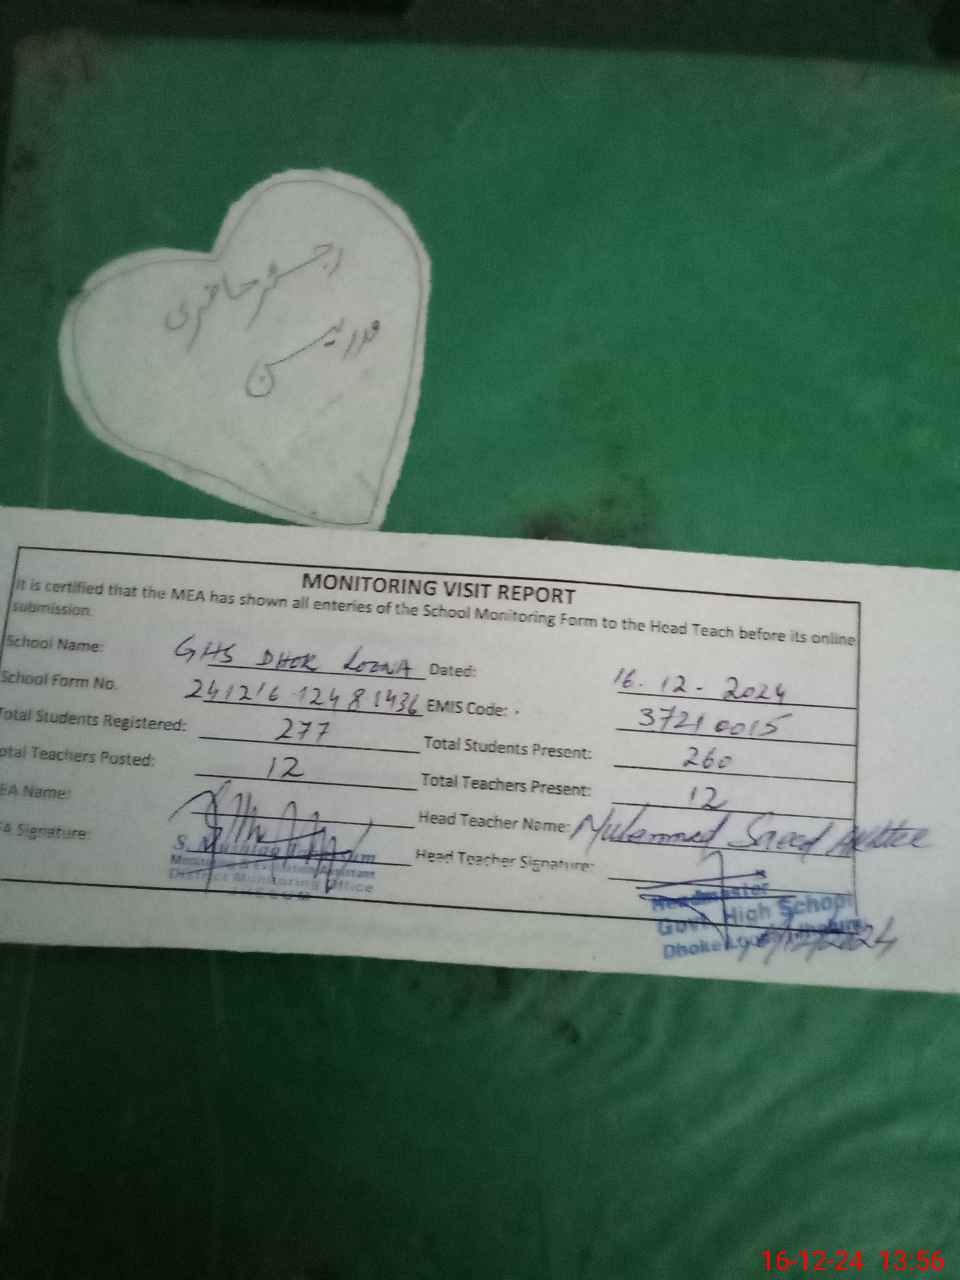 رجسٹر حاضری
مدرسین
MONITORING VISIT REPORT
It is certified that the MEA has shown all enteries of the School Monitoring Form to the Head Teach before its online
submission.
School Name: GHS DHOK LOONA Dated: 16.12-2024
School Form No. 241216-12481436 EMIS Code: 37210015
Total Students Registered: 277 Total Students Present: 260
Total Teachers Posted: 12 Total Teachers Present: 12
EA Name: Head Teacher Name: Muhammad Saeed Akhter
EA Signature: Head Teacher Signature:
Monitoring & Evaluation Assistant
District Monitoring Office
Headmaster
Govt High School
16-12-24 13:56